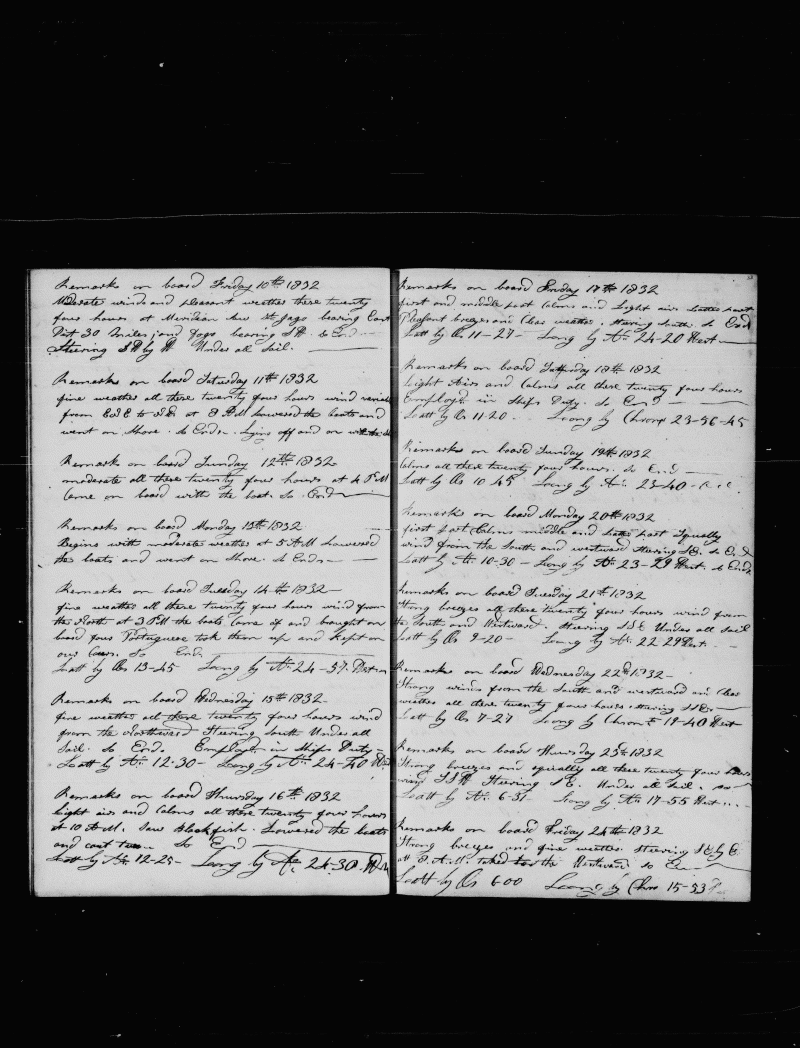 Remarks on board Friday 10th 1832
Moderate winds and pleasant weather these twenty
four hours at Meridian saw St Jago bearing East
Dist 30 Miles and Fogo bearing SW So End
Steering SW by W Under all Sail.
Remarks on board Saturday 11th 1832
fine weather all these twenty four hours wind
from to at 8 AM lowered the boats and
went on Shore. So Ends. Lying off and on with the
Remarks on board Sunday 12th 1832
moderate all these twenty four hours at 4 PM
Came on board with the boat. So End
Remarks on board Monday 13th 1832
Begins with moderate weather at 5 AM Lowered
the boats and went on Shore. So Ends
Remarks on board Tuesday 14th 1832
fine weather all these twenty four hours wind from
the North at 3 PM the boats Came of and bought on
board four Portuguese took them up and kept on
our Cours. So End.
Latt by Obs 13-45 Long by 24-57. West
Remarks on board Wednesday 15th 1832
fine weather all these twenty four hours wind
from the Northward Steering South Under all
Sail. So End. Employd in Ships Duty
Latt by 12-30 Long by 24-40 West
Remarks on board Thursday 16th 1832
Light airs and Calms all these twenty four hours
at 10 AM. Saw Blackfish. Lowered the boats
and caut two. So End
Latt by 12-25 Long by 24-30. W
Remarks on board Friday 17th 1832
first and middle part Calms and Light airs Latter part
Pleasant breezes and Clear weather. Steering South. So End
Latt by Obs 11-27 Long by 24-20 West
Remarks on board Saturday 18th 1832
Light Airs and Calms all these twenty four hours
Employd in Ships Duty. So End
Latt by Obs 11-20. Long by Chron 23-56-45
Remarks on board Sunday 19th 1832
Calms all these twenty four hours. So End
Latt by Obs 10-45 Long by 23-40
Remarks on board Monday 20th 1832
first part Calms middle and Latter part Squally
wind from the South and westward Steering SE. So End
Latt by 10-30 Long by 23-29 West. So Ends
Remarks on board Tuesday 21st 1832
Strong breezes all these twenty four hours wind from
the South and Westward. Steering SSE Under all Sail
Latt by Obs 9-20 Long by 22 29 West
Remarks on board Wednesday 22d 1832
Strong winds from the South and westward and Clear
weather all these twenty four hours Steering
Latt by Obs 7-27 Long by Chron 19-40 West
Remarks on board Thursday 23d 1832
Strong breezes and squally all these twenty four hours
wind SSW Steering SE. Under all Sail. so
Latt by 6-31 Long by 17-55 West
Remarks on board Friday 24th 1832
Strong breezes and fine weather Steering SE by E
at 8 AM. tacked to the Westward So En
Latt by Obs 6-00 Long by Chro 15-53